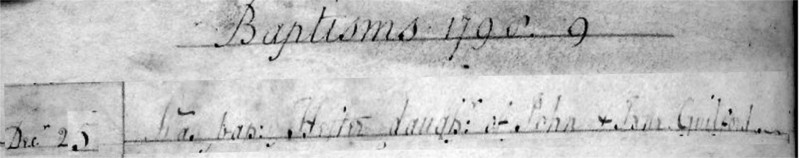 Baptisms 1798. 9
Decr 25 Was bap: Hester daughr of John & Guilford